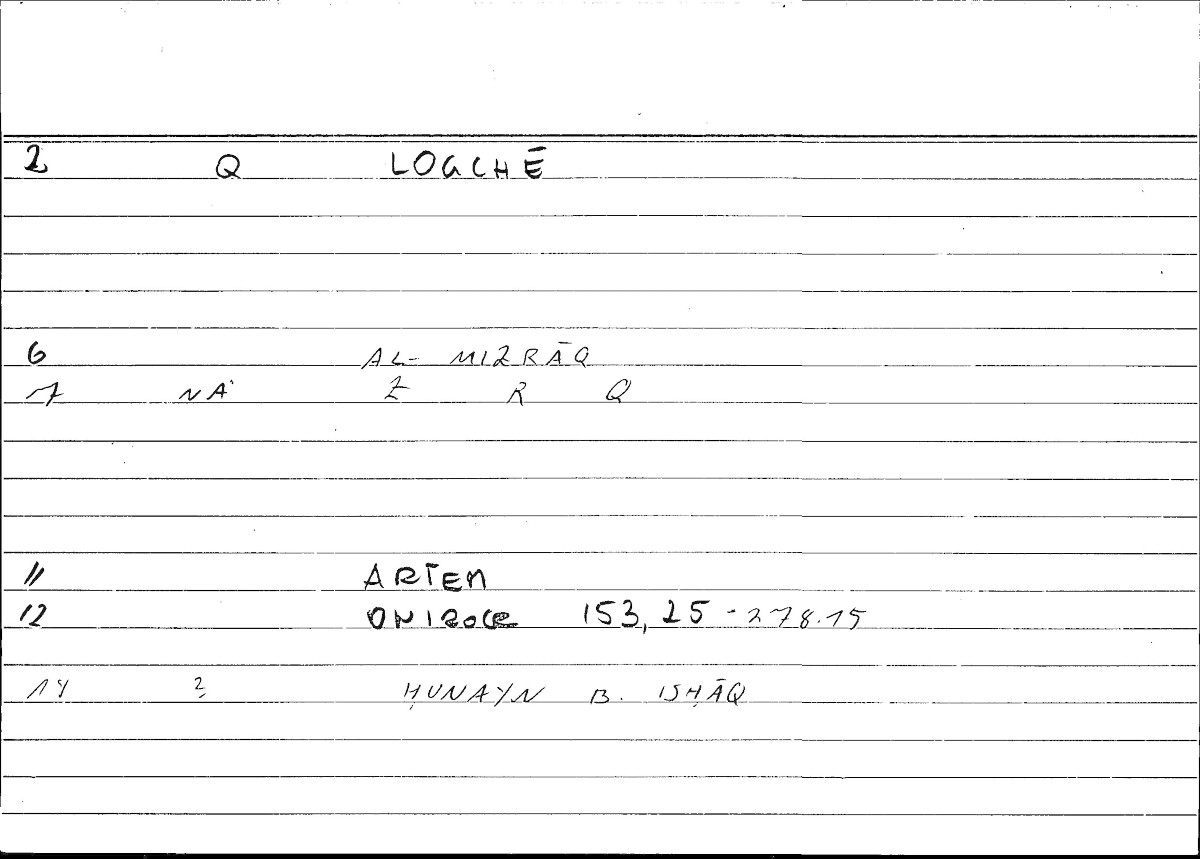 2 Q LOGCHĒ
6 AL-MIZRĀQ
7 NA' Z R Q
11 ARTEM
12 ONIROCR 153,25-278.15
14 2 ḤUNAYN B. ISḤĀQ